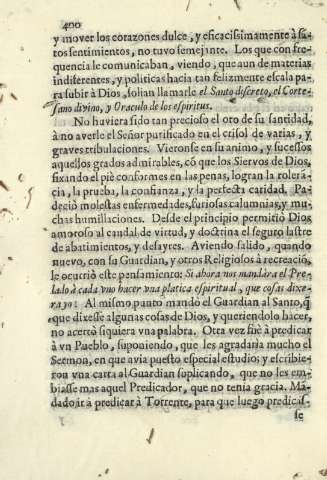 400
y mover los corazones dulce, y eficacissimamente à sã-
tos sentimientos, no tuvo semejante. Los que con fre-
quencia le comunicaban, viendo, que aun de materias
indiferentes, y politicas hacia tan felizmente escala pa-
ra subir à Dios, solian llamarle el Santo discreto, el Corte-
sano divino, y Oraculo de los espiritus.
No huviera sido tan precioso el oro de su santidad,
à no averle el Señor purificado en el crisol de varias, y
graves tribulaciones. Vieronse en su animo, y sucessos
aquellos grados admirables, cõ que los Siervos de Dios,
fixando el piè conformes en las penas, logran la tolerã-
cia, la prueba, la confianza, y la perfecta caridad. Pa-
deciò molestas enfermedades, furiosas calumnias, y mu-
chas humillaciones. Desde el principio permitiò Dios
amoroso al caudal de virtud, y doctrina el seguro lastre
de abatimientos, y desayres. Aviendo salido, quando
nuevo, con su Guardian, y otros Religiosos à recreaciõ,
le ocurriò este pensamiento: Si ahora nos mandàra el Pre-
lado à cada vno hacer vna platica espiritual, que cosas dixe-
ra yo? Al mismo punto mandò el Guardian al Santo, q̃
que dixesse algunas cosas de Dios, y queriendolo hacer,
no acertò siquiera vna palabra. Otra vez fuè à predicar
à vn Pueblo, suponiendo, que les agradaria mucho el
Sermon, en que avia puesto especial estudio; y escribie-
ron vna carta al Guardian suplicando, que no les em-
biasse mas aquel Predicador, que no tenia gracia. Mã-
dadoàr à predicar à Torrente, para que luego predicas-
se